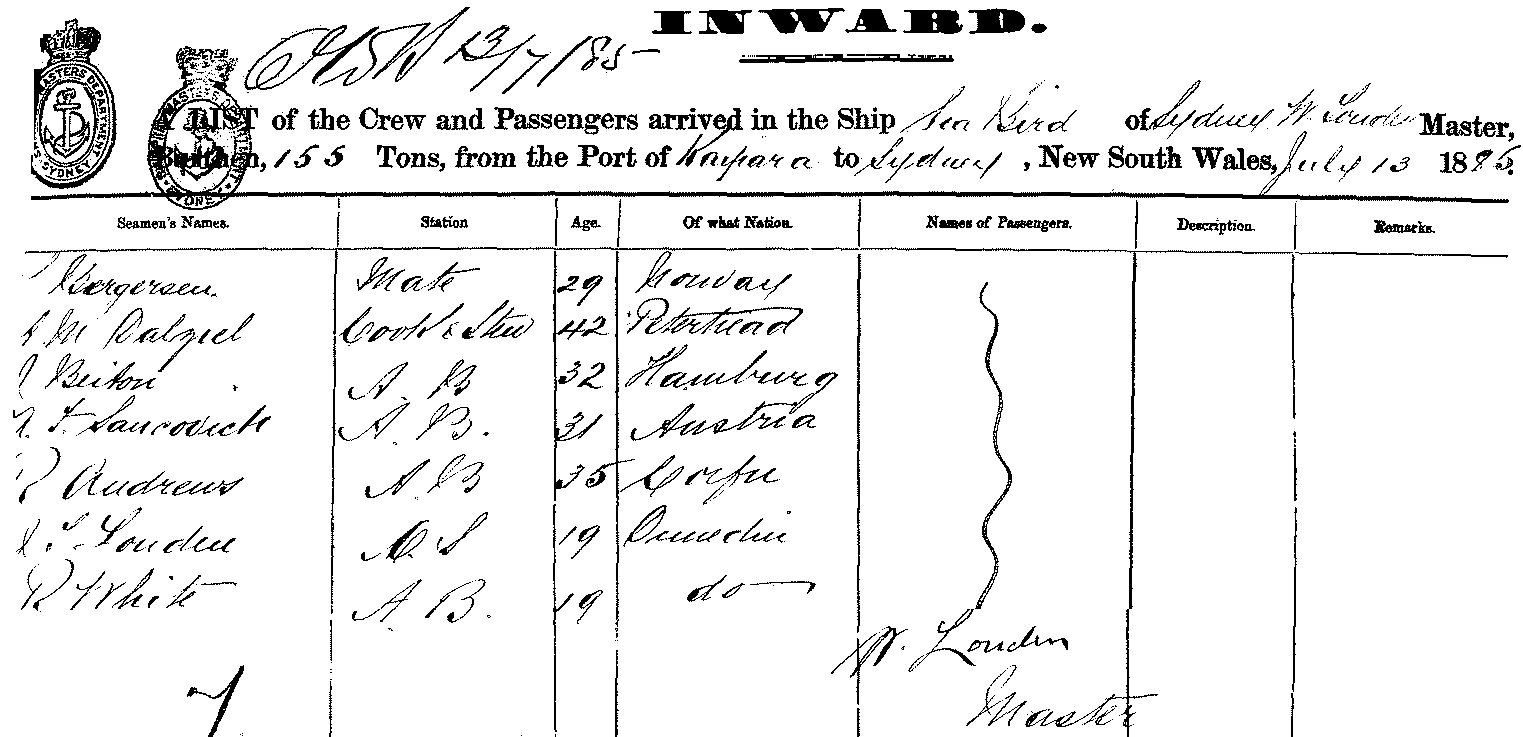 INWARD.
13/7/85
A LIST of the Crew and Passengers arrived in the Ship Sea Bird of Sydney W. Louden Master,
Burthen, 155 Tons, from the Port of Kaipara to Sydney, New South Wales, July 13 1885.
Seamen's Names. Station Age. Of what Nation. Names of Passengers. Description. Remarks.
Bergersen. Mate 29 Norway
M Dalziel Cook & Stew 42 Peterhead
Beiton A. B 32 Hamburg
F. Sancovich A. B. 31 Austria
Andrews A. B 35 Corfu
Louden O. S 19 Dunedin
R White A. B. 19 do
W. Louden
7 Master